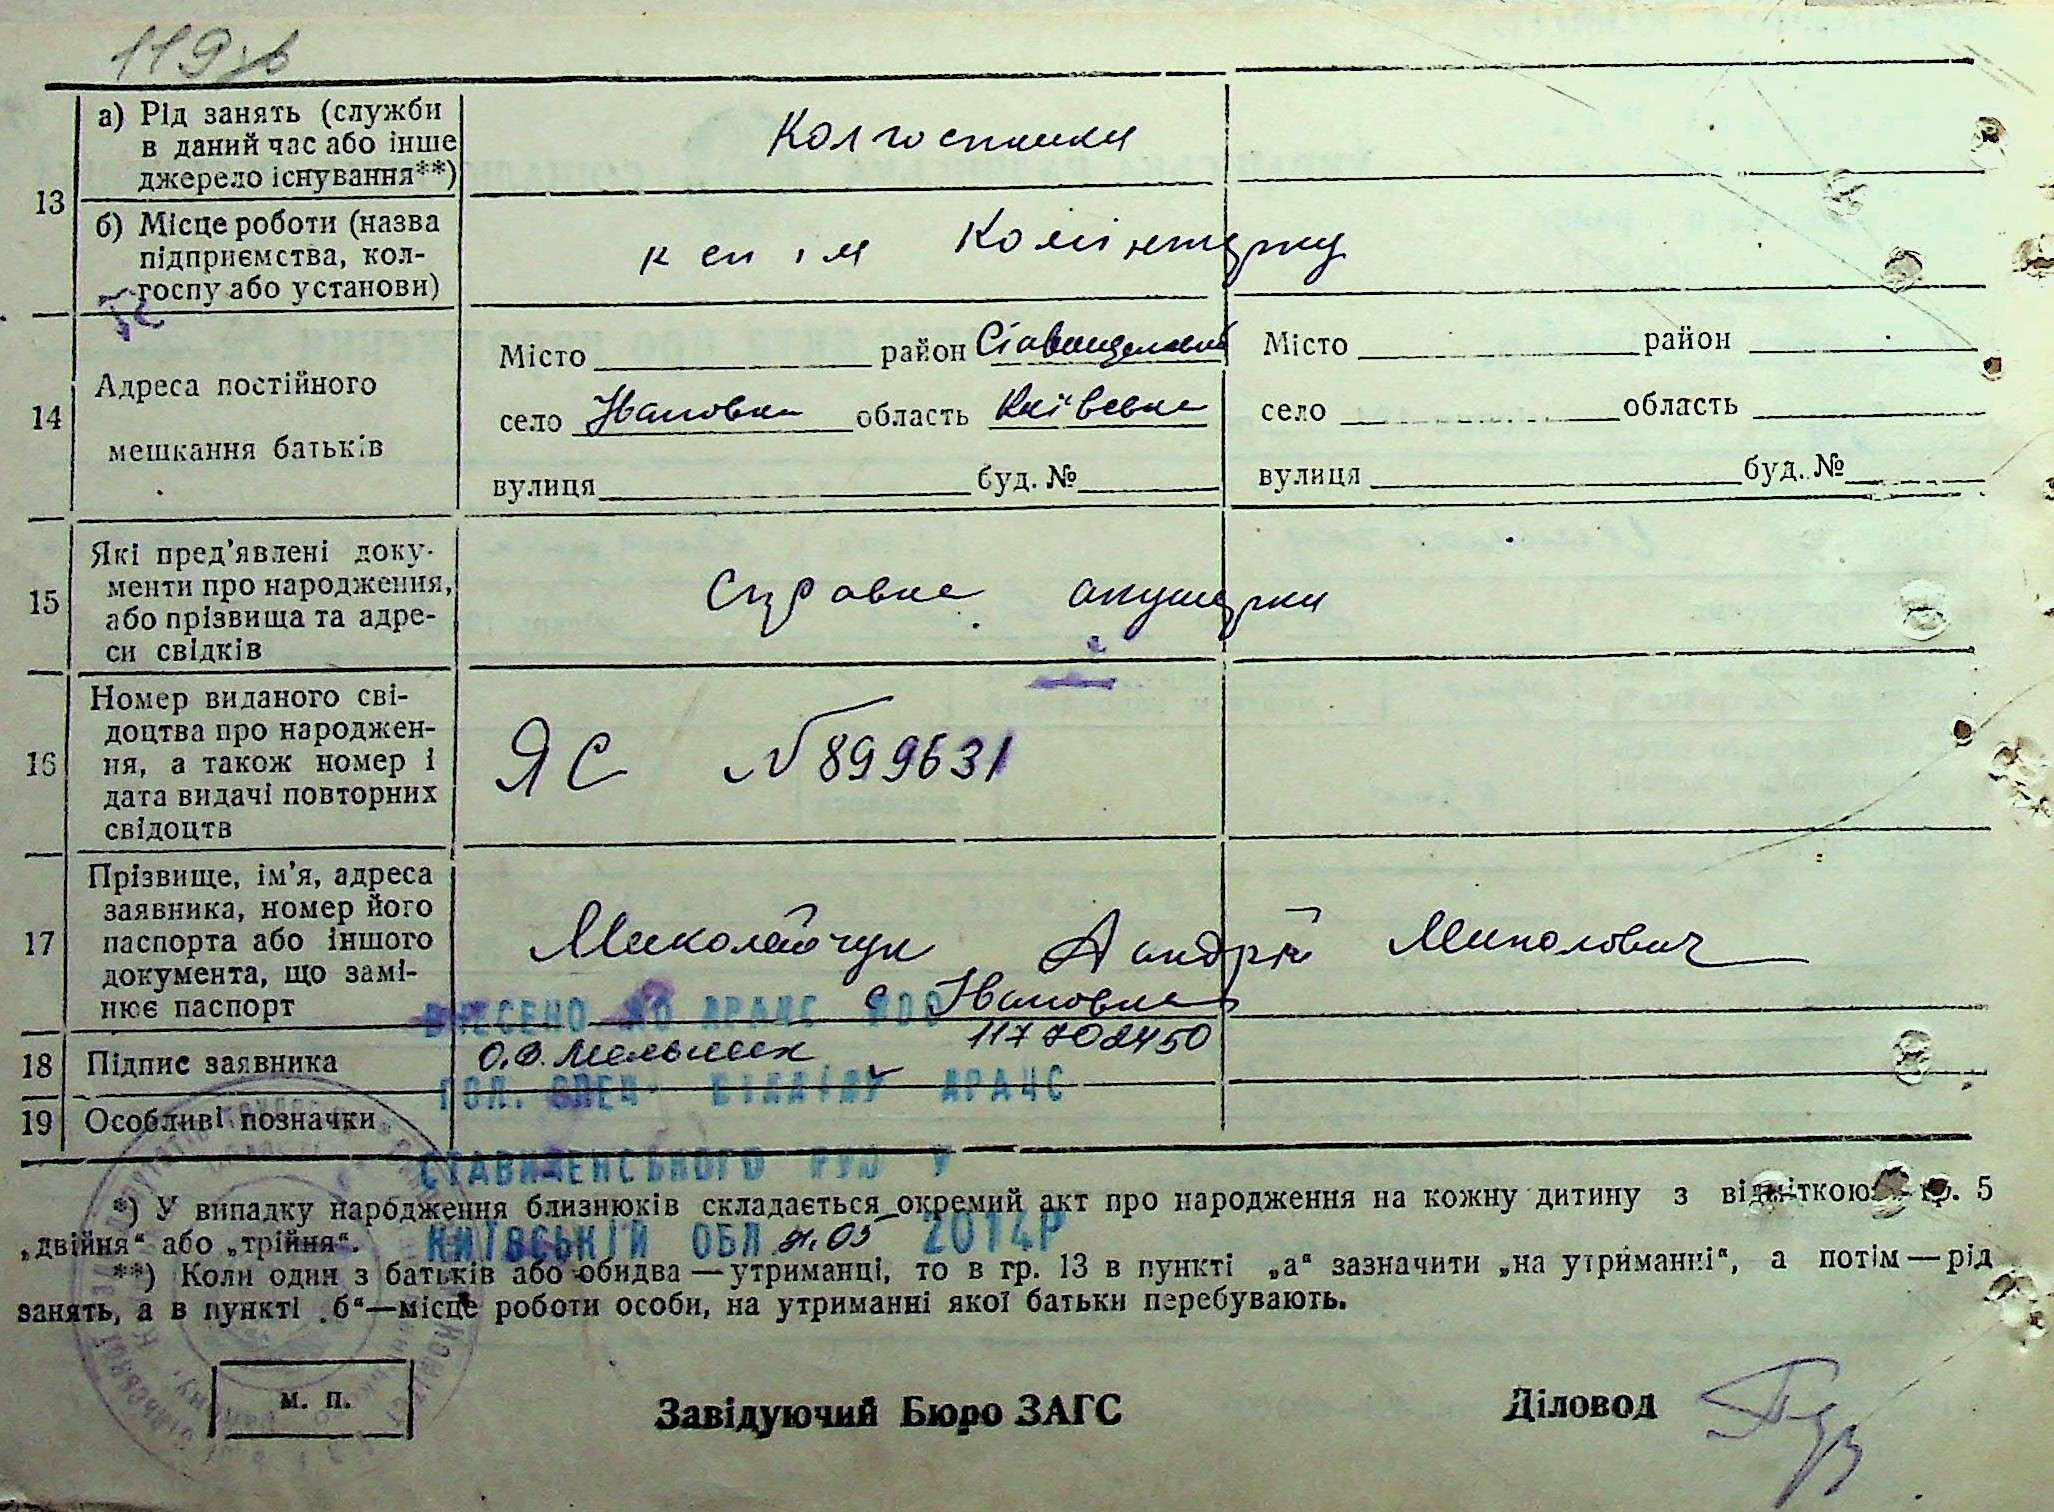 119зв
13
а) Рід занять (служби
в даний час або інше
джерело існування**)
Колгоспники
б) Місце роботи (назва
підприємства, кол-
госпу або установи)
ксп ім Комінтерну
14
Адреса постійного
мешкання батьків
Місто район Ставищенський
село Івановка область Київська
вулиця буд. №
Місто район
село область
вулиця буд. №
15
Які пред'явлені доку-
менти про народження,
або прізвища та адре-
си свідків
Справка акушерки
16
Номер виданого сві-
доцтва про народжен-
ня, а також номер і
дата видачі повторних
свідоцтв
ЯС №899631
17
Прізвище, ім'я, адреса
заявника, номер його
паспорта або іншого
документа, що замі-
нює паспорт
Миколайчук Андрій Миколович
с Івановка
ВНЕСЕНО ДО ДРАЦС
117702450
18
Підпис заявника
О.В. Мельник
ГОЛ. СПЕЦ. ВІДДІЛУ ДРАЦС
19
Особливі позначки
СТАВИЩЕНСЬКОГО РУЮ У
*) У випадку народження близнюків складається окремий акт про народження на кожну дитину з відміткою в гр. 5
„двійня“ або „трійня“.
КИЇВСЬКІЙ ОБЛ 05 2014Р
**) Коли один з батьків або обидва — утриманці, то в гр. 13 в пункті „а“ зазначити „на утриманні“, а потім — рід
занять, а в пункті „б“—місце роботи особи, на утриманні якої батьки перебувають.
м. п.
Завідуючий Бюро ЗАГС
Діловод